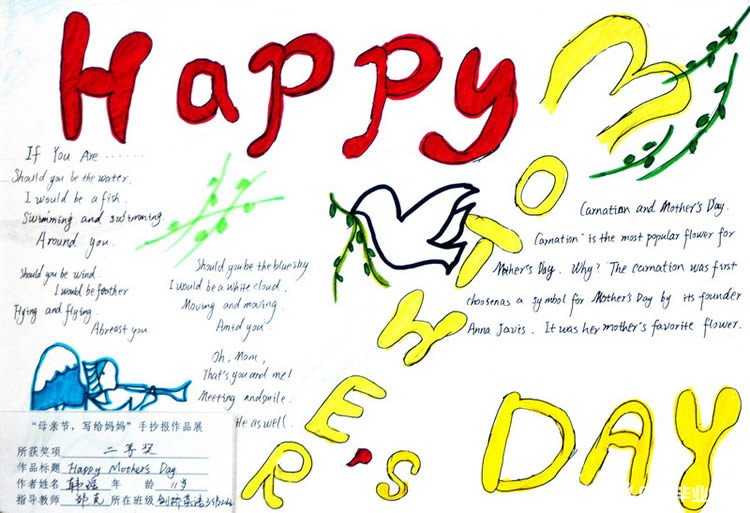 Happy
MOTHER'S
DAY
If You Are ......
Should you be the water.
I would be a fish.
Swimming and swimming
Around you.
Should you be wind.
I would be feather
Flying and flying.
Abreast you
Should you be the blue sky
I would be a white cloud.
Moving and moving
Amid you
Oh, Mom,
That's you and me!
Meeting and smile.
He as well.
Carnation and Mother's Day.
Carnation is the most popular flower for
Mother's Day. Why? The carnation was first
choosenas a symbol for Mother's Day by its founder
Anna Javis. It was her mother's favorite flower.
“母亲节，写给妈妈”手抄报作品展
所获奖项 二等奖
作品标题 Happy Mother's Day
作者姓名 韩瑶 年 龄 11岁
指导教师 所在班级 剑桥英语